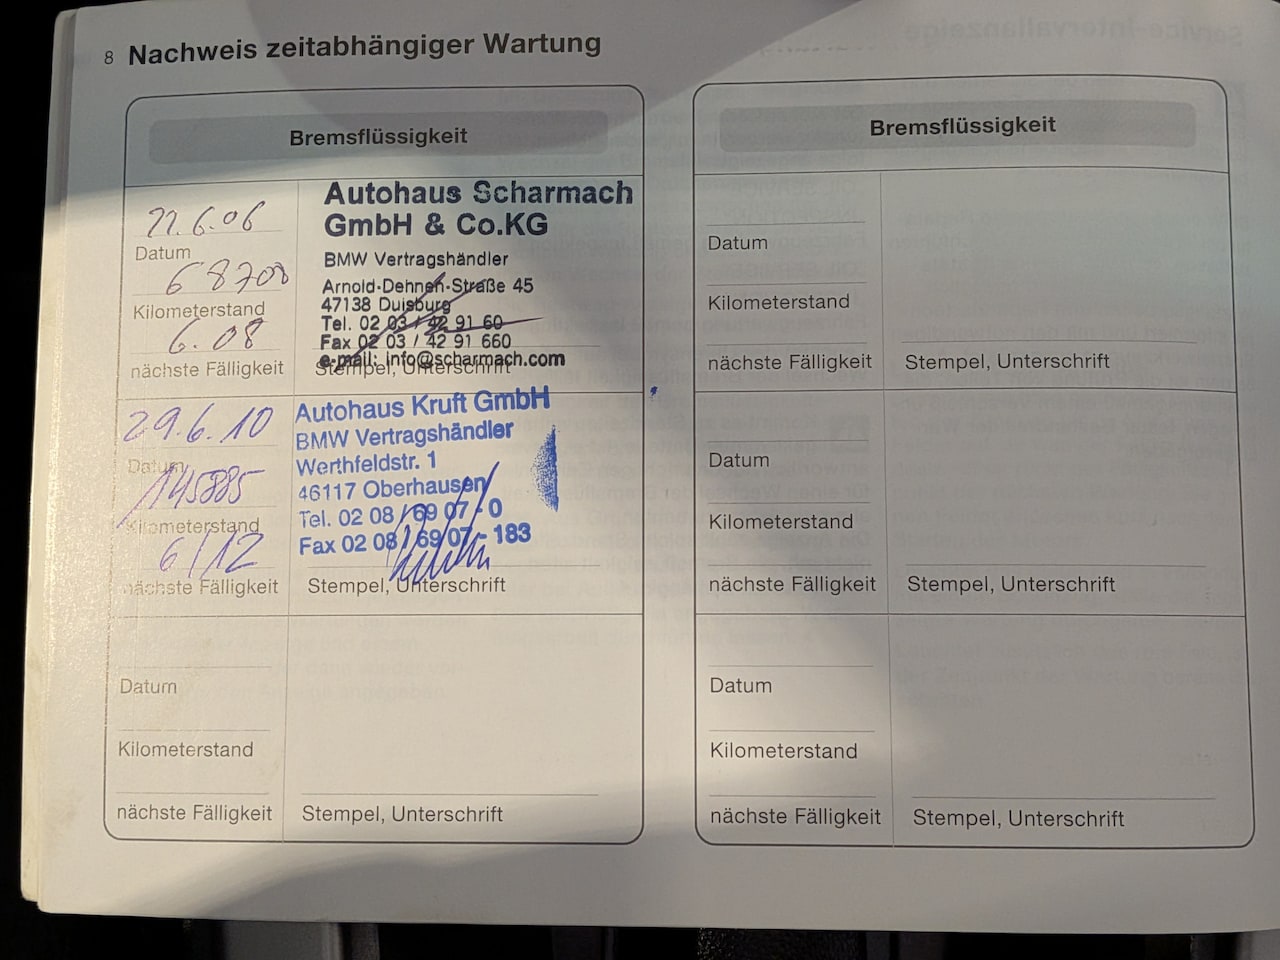 8 Nachweis zeitabhängiger Wartung
Bremsflüssigkeit
22.6.06
Datum
68700
Kilometerstand
6.08
nächste Fälligkeit
Autohaus Scharmach
GmbH & Co.KG
BMW Vertragshändler
Arnold-Dehnen-Straße 45
47138 Duisburg
Tel. 02 03 / 42 91 60
Fax 02 03 / 42 91 660
e-mail: info@scharmach.com
Stempel, Unterschrift
29.6.10
Datum
145885
Kilometerstand
6/12
nächste Fälligkeit
Autohaus Kruft GmbH
BMW Vertragshändler
Werthfeldstr. 1
46117 Oberhausen
Tel. 02 08 / 69 07 - 0
Fax 02 08 / 69 07 - 183
Stempel, Unterschrift
Datum
Kilometerstand
nächste Fälligkeit
Stempel, Unterschrift
Bremsflüssigkeit
Datum
Kilometerstand
nächste Fälligkeit
Stempel, Unterschrift
Datum
Kilometerstand
nächste Fälligkeit
Stempel, Unterschrift
Datum
Kilometerstand
nächste Fälligkeit
Stempel, Unterschrift